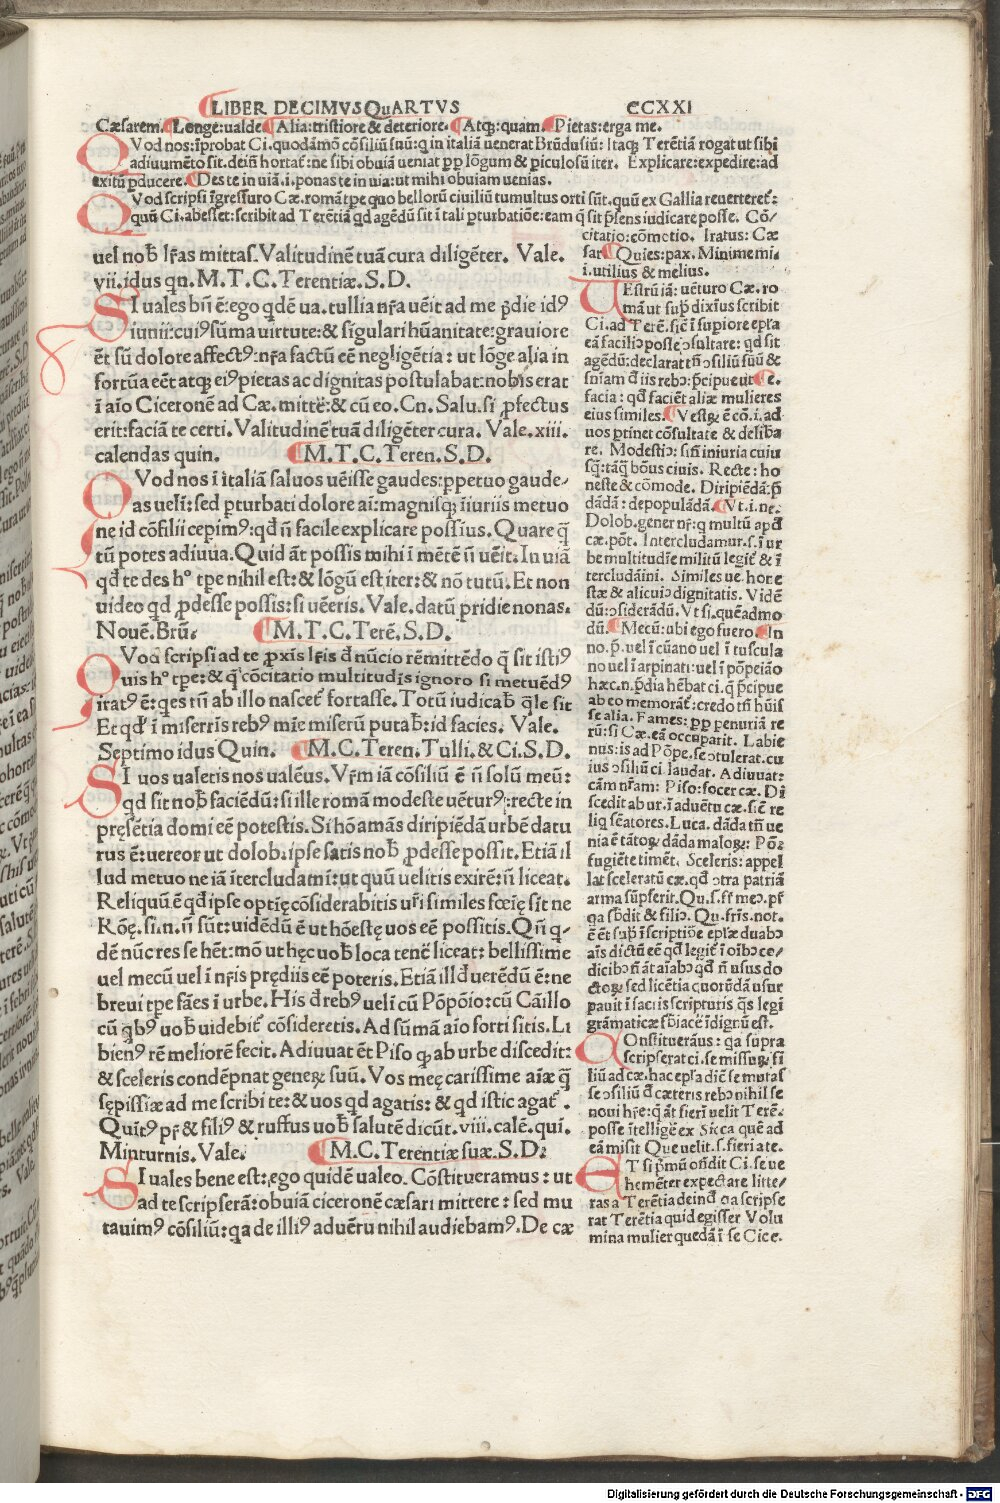 LIBER DECIMVS QuARTVS CCXXI
Cæsarem. Longe: ualde. Alia: tristiore & deteriore. Atq;: quam. Pietas: erga me.
QVod nos: īprobat Ci. quodāmō cōsiliū suū: q in italiā uenerat Brūdusiū: Itaq; Terētiā rogat ut sibi
adiuumēto sit. deiñ hortat: ne sibi obuiā ueniat ꝑꝑ lōgum & piculosū iter. Explicare: expedire: ad
exitū ꝑducere. Des te in uiā. i. ponas te in uia: ut mihi obuiam uenias.
QVod scripsi īgressuro Cæ. romā tꝑe quo bellorū ciuiliū tumultus orti sūt. quū ex Gallia reuerteret:
quū Ci. abesset: scribit ad Terētiā qd agēdū sit ī tali ꝑturbatiōe: eam q̄ sit p̄sens iudicare posse. Cō/
citatio: cōmotio. Iratus: Cæ
sar Quies: pax. Minime mi.
i. utilius & melius.
uel nob̄ lr̄as mittas. Valitudinē tuā cura diligēter. Vale.
vii. idus qn. M. T. C. Terentiæ. S. D.
SI uales bn̄ ē: ego qdē ua. tullia nr̄a uēit ad me p̄die idꝰ
iunii: cuiꝰ sūma uirtute: & sīgulari hūanitate: grauiore
ēt sū dolore affectꝰ: nr̄a factū eē negligētia: ut lōge alia in
fortūa eēt atq; eiꝰ pietas ac dignitas postulabat: nobis erat
ī aīo Ciceronē ad Cæ. mittē: & cū eo. Cn. Salu. si ꝓfectus
erit: faciā te certi. Valitudinē tuā diligēter cura. Vale. xiii.
calendas quin. M. T. C. Teren. S. D.
QVod nos ī italiā saluos uēisse gaudes: ꝑpetuo gaude/
as ueli: sed ꝑturbati dolore ai: magnisq; īiuriis metuo
ne id cōsilii cepimꝰ: qd n̄ facile explicare possius. Quare q̄
tū potes adiuua. Quid āt possis mihi ī mētē n̄ uēit. In uiā
qd te des hº tꝑe nihil est: & lōgū est iter: & nō tutū. Et non
uideo qd ꝓdesse possis: si uēeris. Vale. datū pridie nonas.
Nouē. Brū. M. T. C. Terē. S. D.
QVod scripsi ad te ꝓxīs lr̄is d̄ nūcio rēmittēdo q̄ sit istiꝰ
uis hº tꝑe: & q̄ cōcitatio multitudīs ignoro si metuēdꝰ
iratꝰ ē: qes tn̄ ab illo nascet fortasse. Totū iudicab̄ q̄le sit
Et qd ī miserris rebꝰ mie miserū putab̄: id facies. Vale.
Septimo idus Quin. M. C. Teren. Tulli. & Ci. S. D.
SI uos ualetis nos ualēus. Vr̄m iā cōsiliū ē n̄ solū meū:
qd sit nob̄ faciēdū: si ille romā modeste uētur: recte in
pręsētia domi eē potestis. Si hō amās diripiēdā urbē datu
rus ē: uereor ut dolob. ipse satis nob̄ ꝓdesse possit. Etiā il
lud metuo ne iā ītercludamī: ut quū uelitis exirē: n̄ liceat.
Reliquū ē qd ipse optię cōsiderabitis ur̄i similes fœię sīt ne
Rōę. si. n. n̄ sūt: uidēdū ē ut hōestę uos eē possitis. Qn̄ q/
dē nūc res se hēt: mō ut hęc uob̄ loca tenē liceat: bellissime
uel mecū uel ī nr̄is prędiis eē poteris. Etiā illd uerēdū ē: ne
breui tꝑe fāes ī urbe. His d̄ rebꝰ ueli cū Pōpōio: cū Cāillo
cū qbꝰ uob̄ uidebit cōsideretis. Ad sūmā aīo forti sitis. Li
bienꝰ rē meliorē fecit. Adiuuat ēt Piso q ab urbe discedit:
& sceleris condēpnat generꝝ suū. Vos meę carissime aīæ q̄
sępissiæ ad me scribite: & uos qd agatis: & qd istic agat.
Quītꝰ pr̄ & filiꝰ & ruffus uob̄ salutē dicūt. viii. calē. qui.
Minturnis. Vale. M. C. Terentiæ suæ. S. D.
SI uales bene est: ego quidē ualeo. Cōstitueramus: ut
ad te scripserā: obuiā ciceronē cæsari mittere: sed mu
tauimꝰ cōsiliū: qa de illiꝰ aduētu nihil audiebamꝰ. De cæ
VEstrū iā: uēturo Cæ. ro
mā ut sup̄ dixius scribit
Ci. ad Terē. sic ī supiore epl̄a
eā faciliꝰ posse ꝯsultare: qd sit
agēdū: declarat tn̄ ꝯsiliū suū &
sn̄iam d̄ iis rebꝰ: p̄cipue ut e.
facia: qd faciēt aliæ mulieres
eius similes. Vestꝝ ē cō. i. ad
uos ꝑtinet cōsultate & deliba
re. Modestiꝰ: sifī iniuria cuiu
sq̄: tāq̄ bōus ciuis. Recte: ho
neste & cōmode. Diripiēdā: p̄
dādā: depopulādā. Vt. i. ne.
Dolob. gener nr̄: q multū apd
cæ. pōt. Intercludamur. s. ī ur
be multitudīe militū legit & ī
tercludāini. Similes ue. hore
stæ & alicuiꝰ dignitatis. Vidē
dū: ꝯsiderādū. Vt si. quēadmo
dū. Mecū: ubi ego fuero. In
no. p̄. uel ī cūano uel ī tuscula
no uel ī arpinati: uel ī pōpeiāo
hæc. n. p̄dia hēbat ci. q̄ p̄cipue
ab eo memorāt: credo tn̄ hūis
se alia. Fames: ꝑꝑ penuriā re
rū: si Cæ. eā occuparit. Labie
nus: is ad Pōpe. se ꝯtulerat. cu
ius ꝯsiliū ci. laudat. Adiuuat:
cām nr̄am: Piso: socer cæ. Di
scedit ab ur. ī aduētu cæ. sic re
liq seatores. Luca. dāda tn̄ ue
nia ē tātoꝝ dāda maloꝝ: Pō.
fugiēte timēt. Sceleris: appel
lat sceleratū cæ. qd ꝯtra patriā
arma sūpserit. Qu. s. fr̄ meꝰ. pr̄
qa sb̄dit & filiꝰ. Qu. fr̄is. not.
ē ēt sup̄ ī scriptiōe epl̄æ duabꝰ
aīs dictū eē qd legit ī oībꝰ co/
dicibꝰ n̄ āt aīabꝰ qd n̄ usus do
ctoꝝ sed licētia quorūdā usur
pauit ī sacris scripturis q̄s legī
grāmaticæ sb̄iacē īdignū est.
COnstituerāus: qa supra
scripserat ci. se missuꝝ fi
liū ad cæ. hac epl̄a diē se mutas
se ꝯsiliū d̄ cæteris rebꝰ nihil se
noui hr̄e: q̄ āt fieri uelit Terē.
posse ītelligē ex Sicca quē ad
eā misit Que uelit. s. fieri a te.
ET si p̄mū oñdit Ci. se ue
hemēter expectare litte/
ras a Terētia deinde qa scripse
rat Terētia quid egisset Volu
mina mulier quedā ī se Cice.
Digitalisierung gefördert durch die Deutsche Forschungsgemeinschaft - DFG